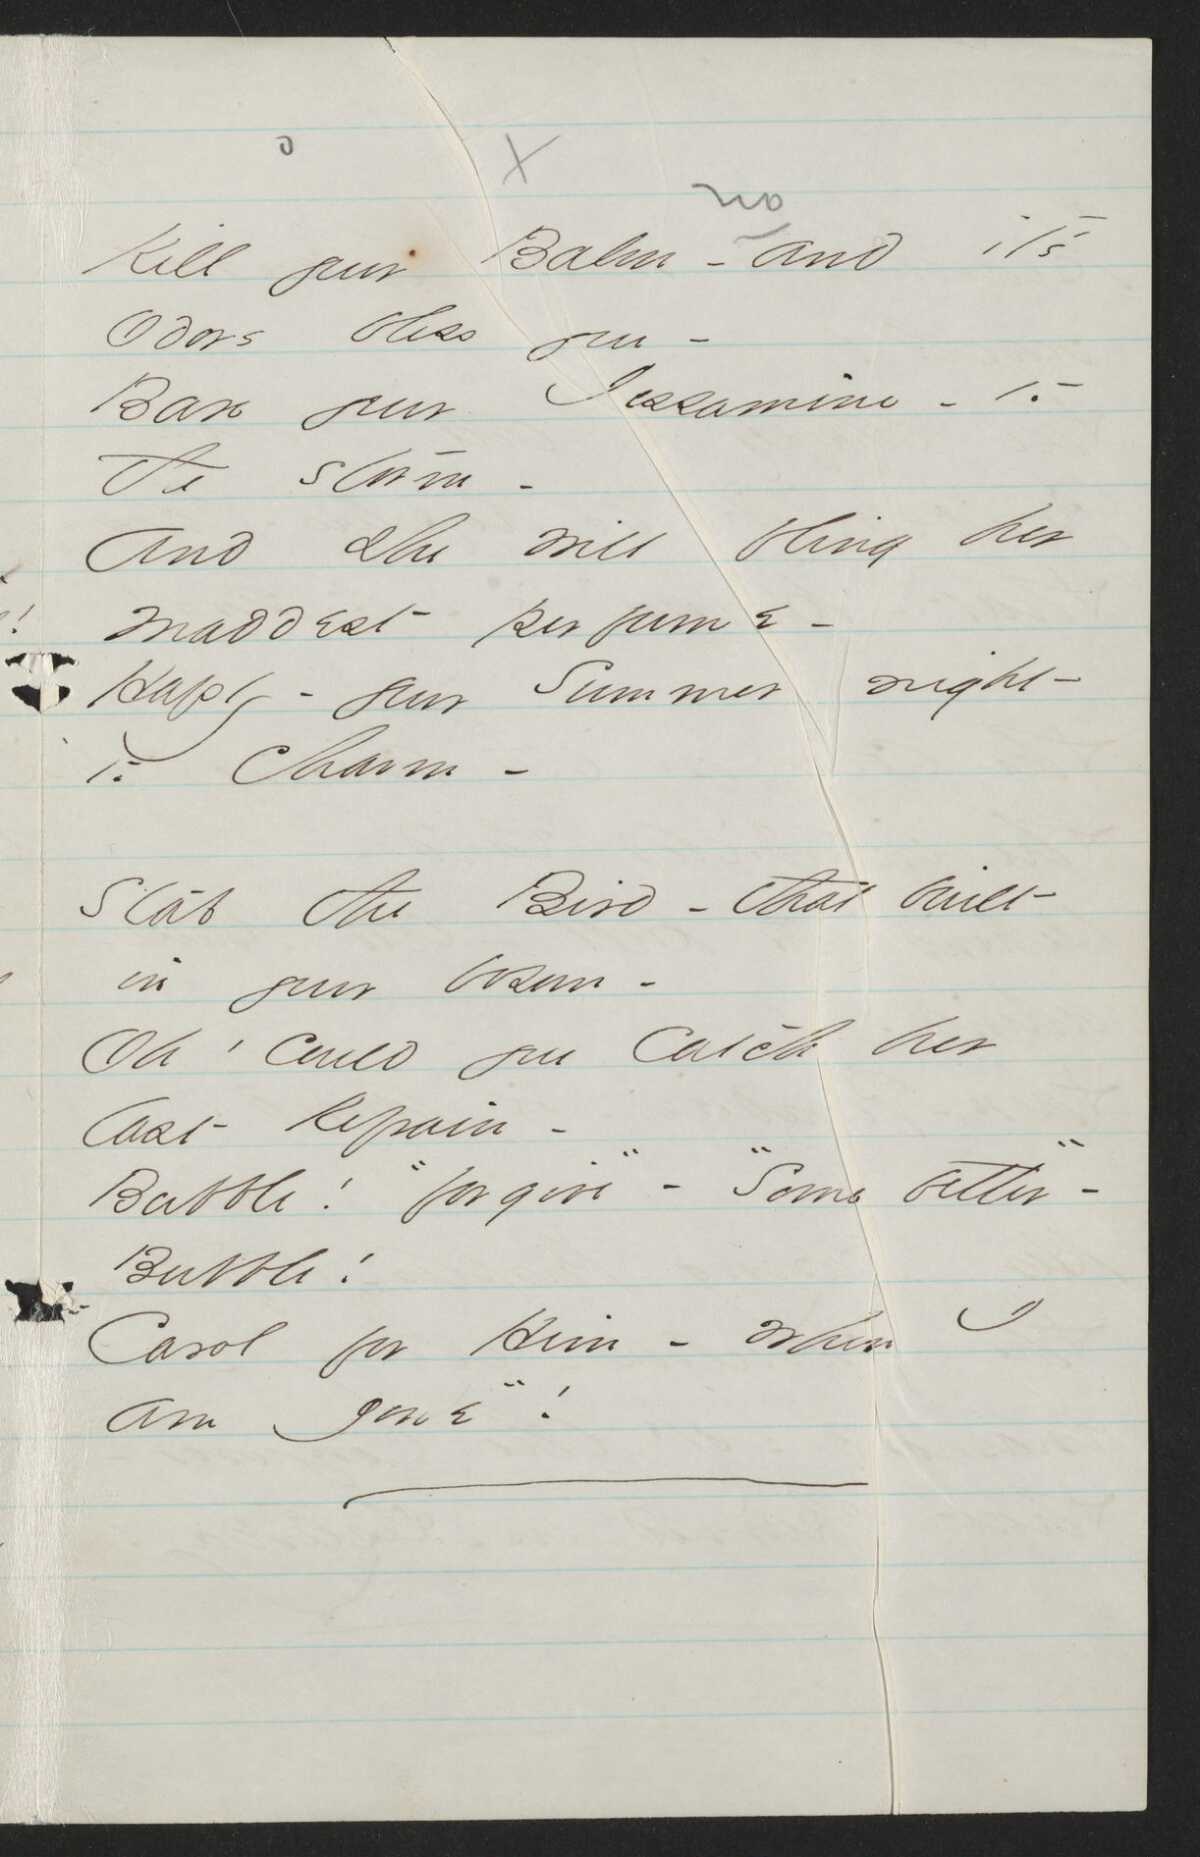 o
X
no
Kill your Balm - and it's
Odors bless you -
Bare your Jessamine - to
the storm -
And she will fling her
maddest perfume -
Haply - your Summer night
to Charm -
Stab the Bird - that built
in your bosom -
Oh! could you catch her
last Refrain -
Bubble! "forgive" - "Some better" -
Bubble!
Carol for Him - when I
am gone"!